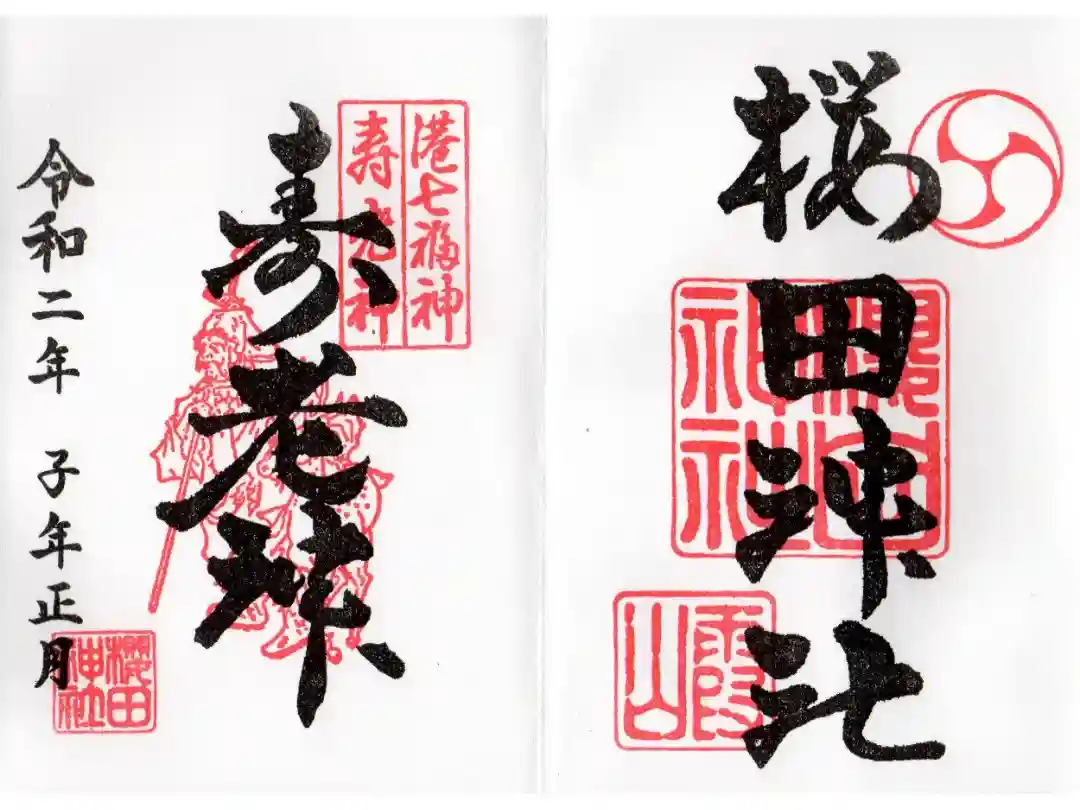 桜田神社
櫻田神社
霞山
港七福神
寿老神
寿老神
令和二年 子年正月
櫻田神社